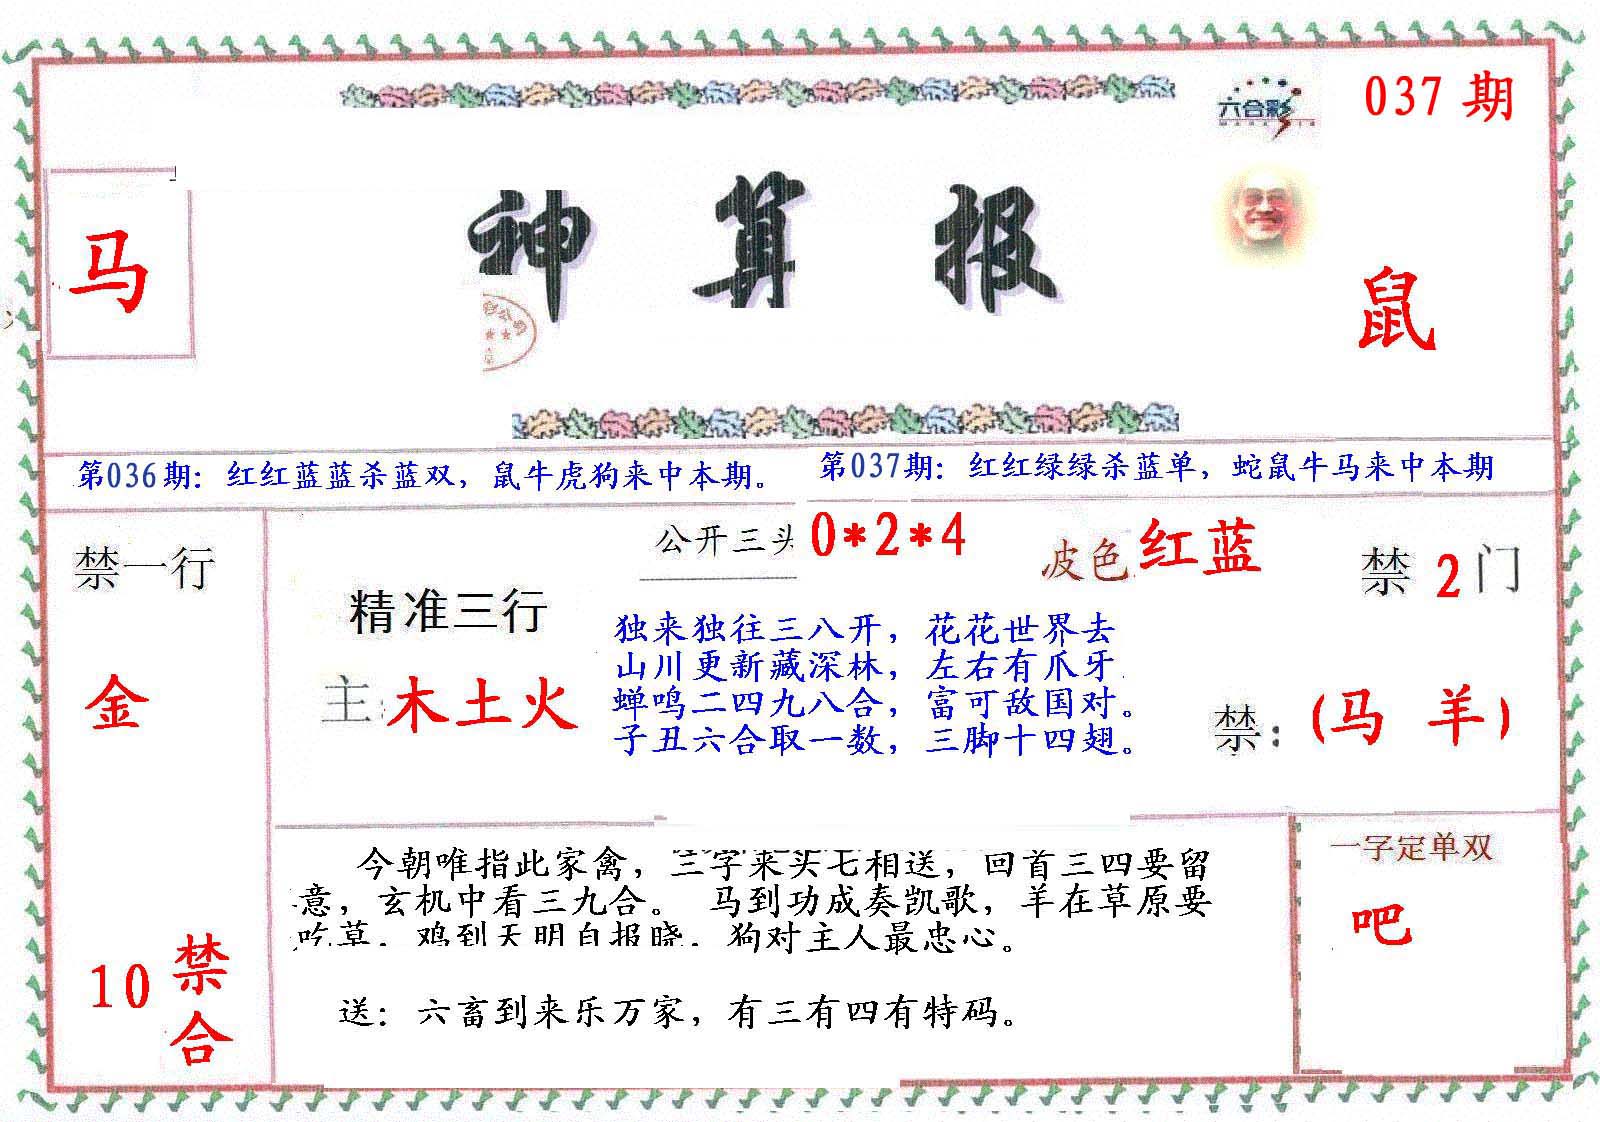 037期
六合彩
马
神算报
鼠
第036期：红红蓝蓝杀蓝双，鼠牛虎狗来中本期。
第037期：红红绿绿杀蓝单，蛇鼠牛马来中本期
禁一行
金
10禁合
公开三头 0*2*4
波色 红蓝
禁 2 门
精准三行
主：木土火
独来独往三八开，花花世界去
山川更新藏深林，左右有爪牙
蝉鸣二四九八合，富可敌国对。
子丑六合取一数，三脚十四翅。
禁：(马 羊)
今朝唯指此家禽，三字来头七相送，回首三四要留
意，玄机中看三九合。 马到功成奏凯歌，羊在草原要
吃草，鸡到天明自报晓，狗对主人最忠心。
送：六畜到来乐万家，有三有四有特码。
一字定单双
吧